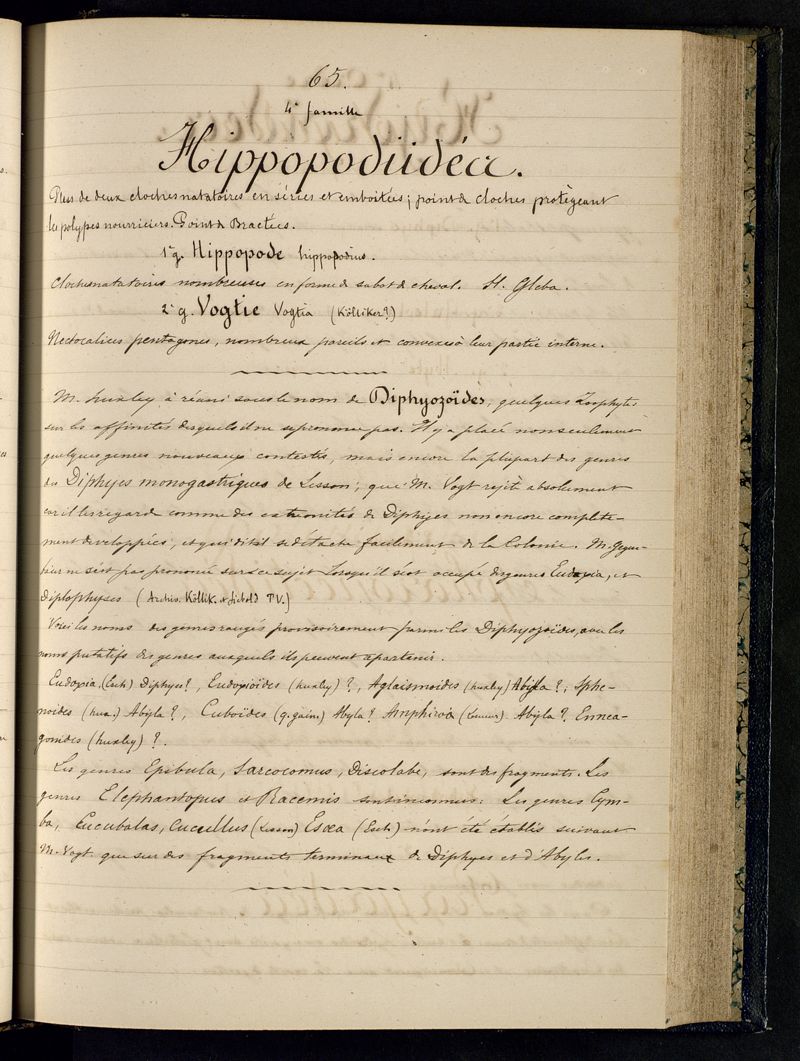 65.
4e famille
Hippopodiidéa.
Plus de deux cloches natatoires en séries et emboitées; point de cloches protègeant
les polypes nourriciers. Point de Bractées.
1er g. Hippopode hippopodius.
Cloches natatoires nombreuses en forme de sabot de cheval. H. Gleba.
2e g. Vogtie Vogtia (Kölliker?)
Nectocalices pentagones, nombreux pareils et convexes à leur partie interne.
M. huxley à réuni sous le nom de Diphyozoïdes, quelques Zoophytes
sur les affinités desquels il ne se prononce pas. Il y a placé non seulement
quelques genres nouveaux contestés, mais encore la plupart des genres
des Diphyes monogastriques de Lesson; que M. Vogt rejète absolument
car il les regarde comme des extrémités de Diphyes non encore complete-
ment developpées, et qui dit il se détache facilement de la Colonie. M. Gegen-
baur ne s'est pas prononcé sur ce sujet lorsqu'il s'est occupé des genres Eudoxia, et
Diplophyses (Archiv. Köllik. et Siebold T V.)
Voici les noms des genres rangés provisoirement parmi les Diphyozoïdes, avec les
noms putatifs des genres auxquels ils peuvent apartenir.
Eudoxia. (Esch) Diphyes?, Eudoxioïdes (huxley)?, Aglaismoïdes (huxley) Abyla?; Sphe-
noïdes (hux.) Abyla?, Cuboïdes (q. gaim.) Abyla? Amphiroa (Lesueur) Abyla?. Ennea-
gonides (huxley)?.
Les genres Epibula, Sarcocomus, Discolabe, sont des fragments. Les
genres Elephantopus et Racemis sont inconnus: Les genres Cym-
ba, Cucubalas, Cucullus (Lesson) Esæa (Esch) n'ont été établis suivant
M. Vogt que sur des fragments terminaux de Diphyes et d'Abyles.